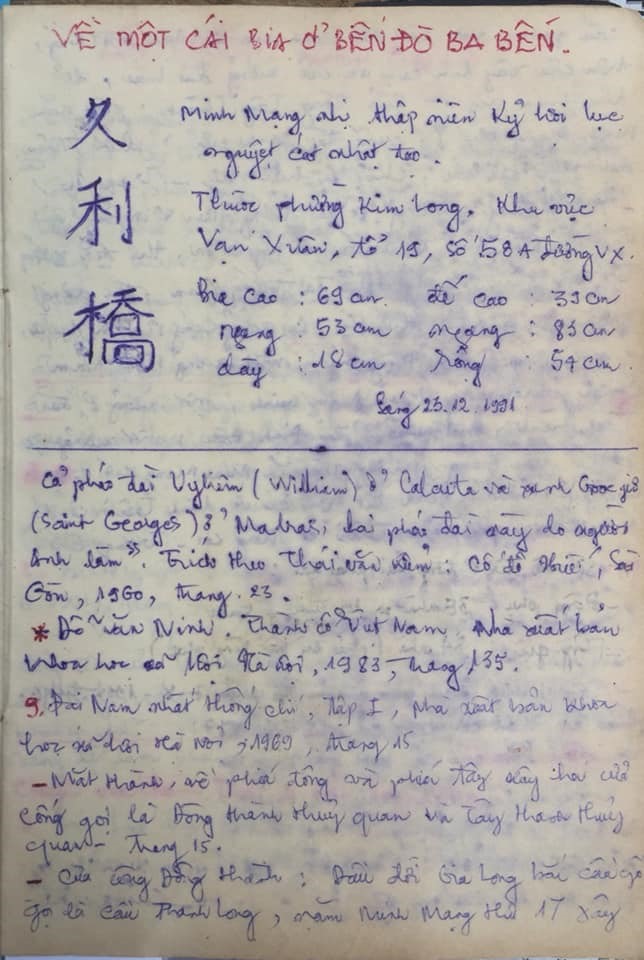 VỀ MỘT CÁI BIA Ở BẾN ĐÒ BA BẾN.
久利橋
Minh Mạng nhị thập niên Kỷ hợi lục
nguyệt cát nhật tạo.
Thuộc phường Kim Long. Khu vực
Vạn Xuân, tổ 19, số 58A đường VX.
Bia cao : 69 cm đế cao : 39 cm
ngang : 53 cm ngang : 83 cm
dày : 18 cm rộng : 54 cm.
Sáng 23.12.1991
cả pháo đài Uyliêm (William) ở Calcuta và
(Saint Georges) ở Madras, hai pháo đài này do người
Anh làm". Trích theo Thái văn Kiểm: Cố đô Huế, Sài
Gòn, 1960, trang. 23.
* Đỗ văn Ninh. Thành cổ Việt Nam. Nhà xuất bản
Khoa học xã hội Hà Nội, 1983, trang 135.
9. Đại Nam nhất thống chí, Tập I, nhà xuất bản Khoa
học xã hội Hà Nội, 1969, trang 15
- Mặt thành, về phía đông và phía tây xây hai cửa
cống gọi là Đông thành thuỷ quan và Tây thành thuỷ
quan - trang 15.
- Cửa cống Đông thành: Đầu đời Gia Long bắc cầu gỗ
gọi là cầu Thanh Long, năm Minh Mạng thứ 17 xây